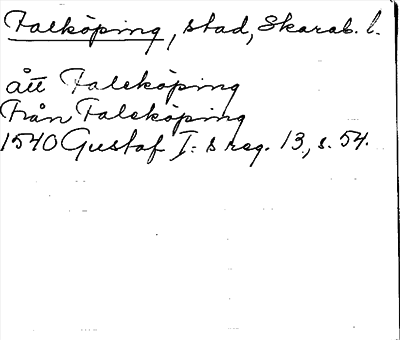 Falköping, stad, Skarab. l.
att Faleköping
Från Faleköping
1540 Gustaf I:s reg. 13, s. 54.